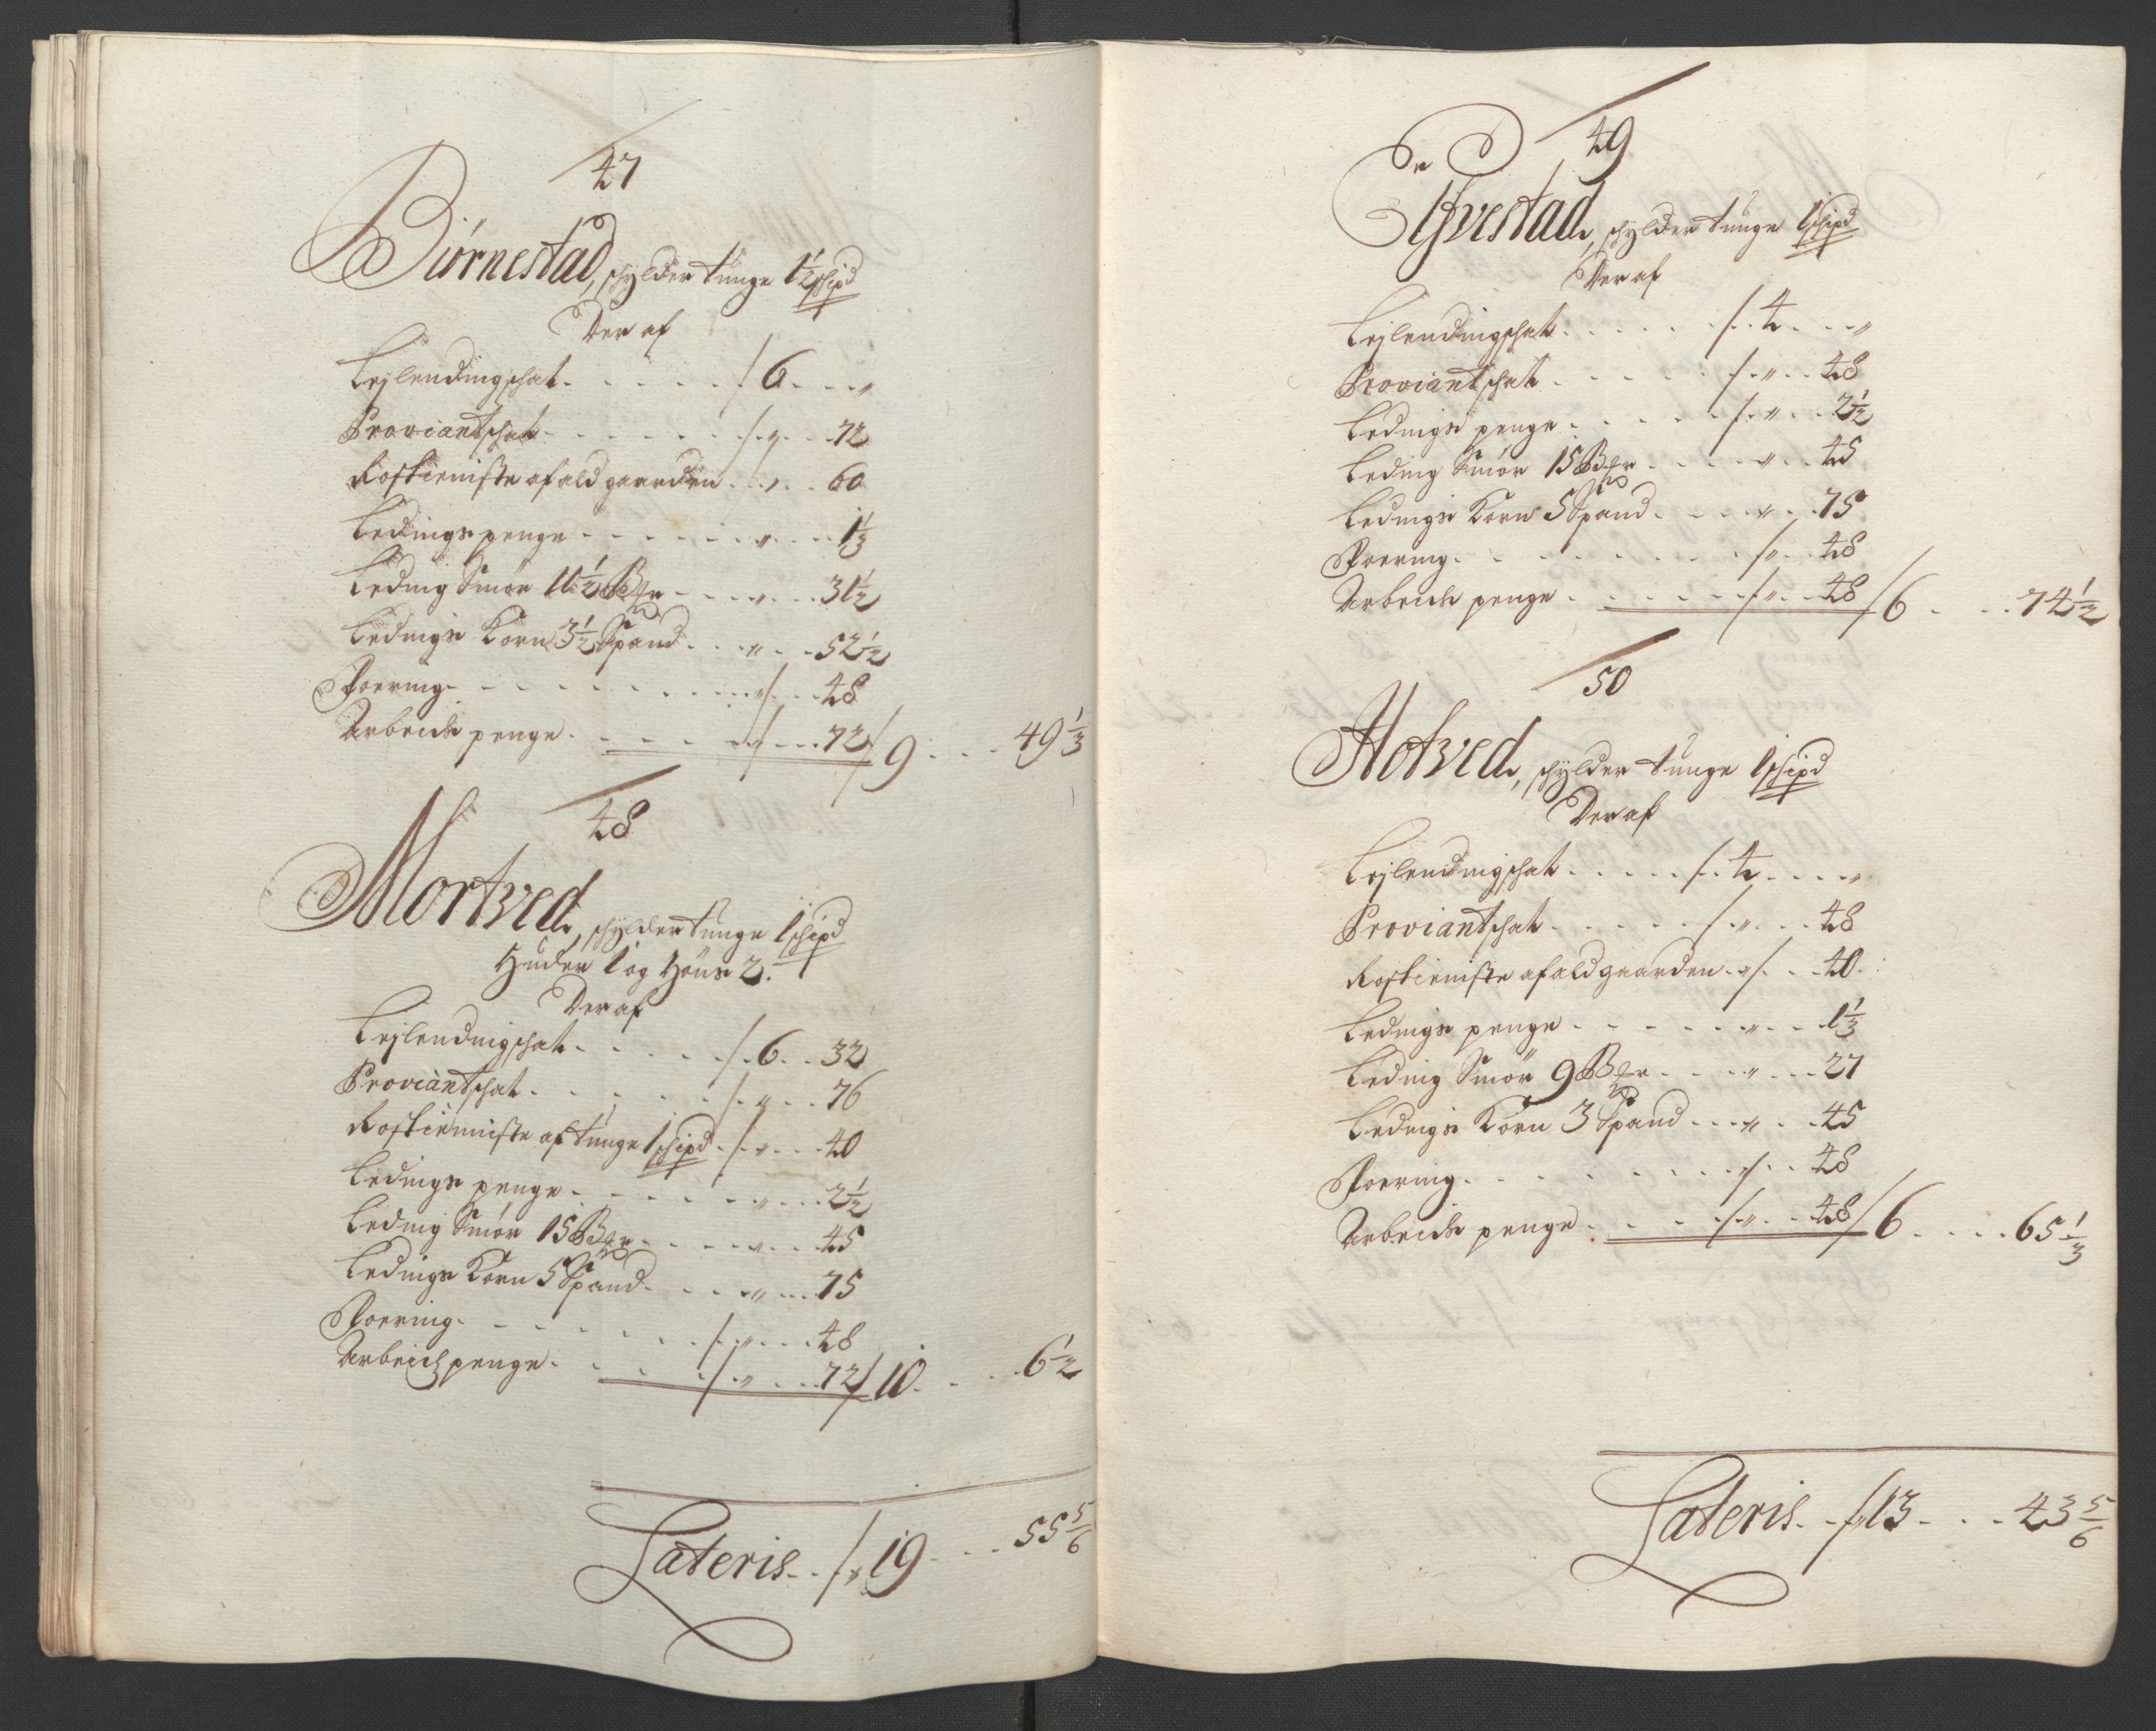 47
Biørnestad, schylder tunge 1½ schipd
Der af
Lejlendingschat . . . . . / 6 . . . „
Proviantschat . . . . . . / „ . . 72
Rostieniste af ald gaarden . . „ . . 60
Ledings penge . . . . . . „ . . . 1⅓
Leding Smør 10½ Bgr . . . „ . . 31½
Ledings Korn 3½ Spand . . . „ . . 52½
Foering . . . . . . . . . „ / . . 48
Arbeids penge . . . . . „ / . . 72 / 9 . . . 49⅓
48
Mortved, schylder tunge 1 schipd
Huder 1 og Høns 2.
Der af
Lejlendingschat . . . . . / . 6 . . 32
Proviantschat . . . . . . / . „ . . 76
Rostieniste af tunge 1 schipd . / . „ . . 40
Ledings penge . . . . . . „ . . 2½
Leding Smør 15 Bgr . . . . . „ . . 45
Ledings Korn 5 Spand . . . . „ . . 75
Foering . . . . . . . . / . „ . . 48
Arbeids penge . . . . / . „ . . 72 / 10 . . . 6½
Lateris . . / „ 19 . . . 55 5/6
49
schylder tunge 1 schipd
Der af
Lejlendingschat . . . . . / . 4 . . . „
Proviantschat . . . . . . / . „ . . 48
Ledings penge . . . . . / . „ . . 2½
Leding Smør 15 Bgr . . . . „ . . 45
Ledings Korn 5 Spand . . . . „ . . 75
Foering . . . . . . . . / „ . . 48
Arbeids penge . . . . . . / „ . . 48 / 6 . . . 74½
50
Hotved, schylder tunge 1 schipd
Der af
Lejlendingschat . . . . . / . 4 . . . „
Proviantschat . . . . . / . „ . . 48
Rostieniste af ald gaarden . „ / . . 40 .
Ledings penge . . . . . . „ . . 1⅓
Leding Smør 9 Bgr . . . . „ . . . 27
Ledings Korn 3 Spand . . . „ . . 45
Foering . . . . . . . . „ / . . 48
Arbeids penge . . . . / . „ . . 48 / 6 . . . . 65⅓
Lateris . . / „ 13 . . . 43 5/6